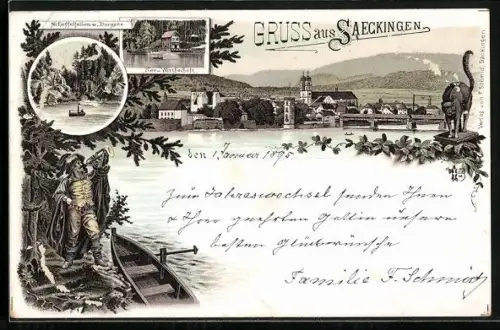 Scheffelfelsen u. Bergsee
See u. Wirtschaft
GRUSS aus SAECKINGEN.
Verlag von F. Schmid, Säckingen
den 1 Januar 1895
Zum Jahreswechsel senden Ihnen
& Ihrer geehrten Gattin unsere
besten Glückwünsche
Familie F. Schmid